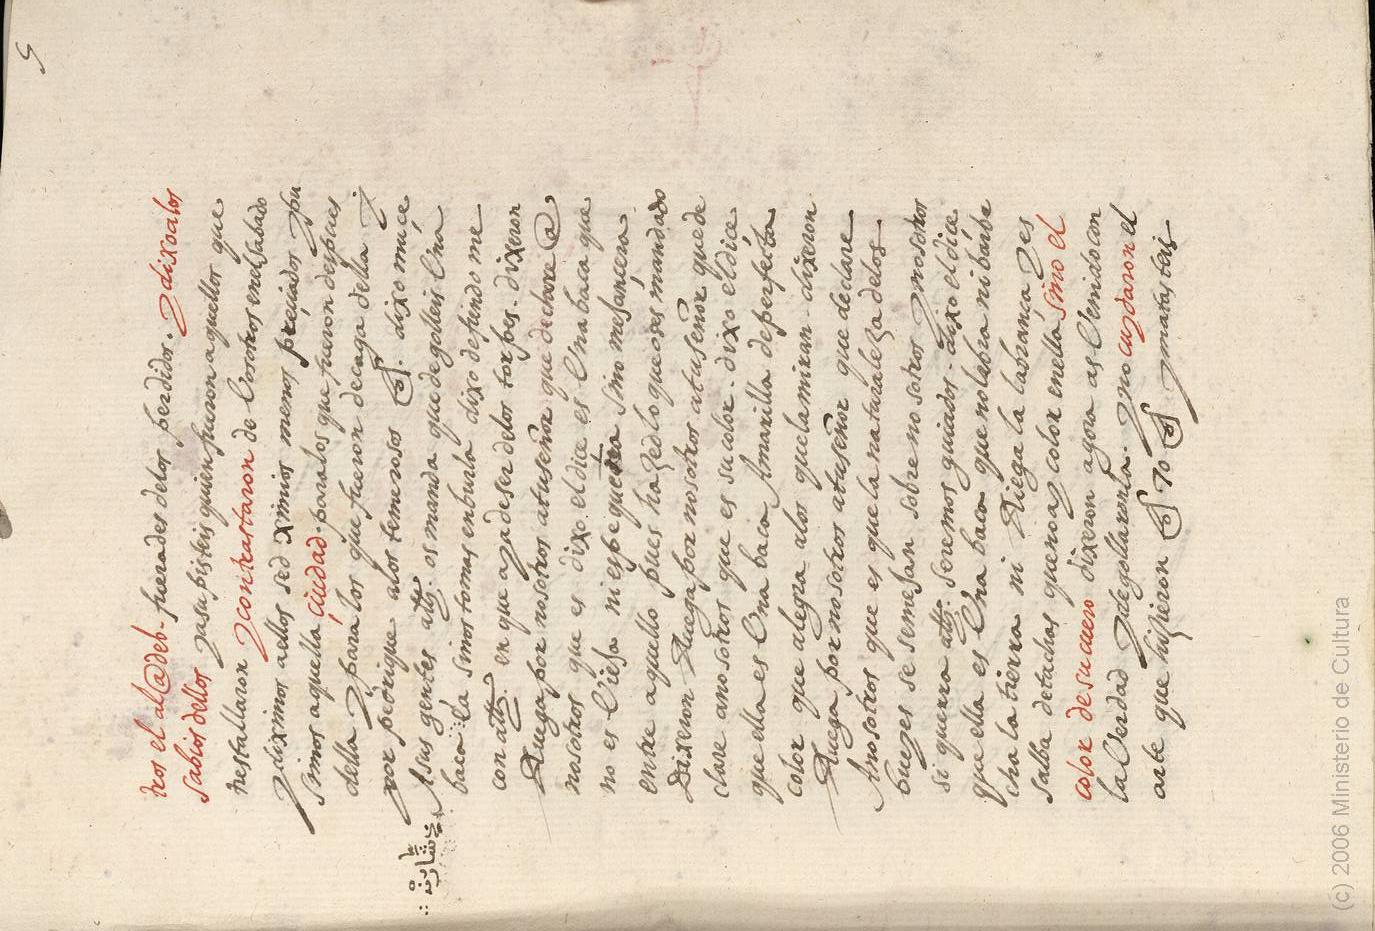 5
tros el al@deb. fuerades delos perdidos. y dixo alos
sabios dellos ya supisteis quien fueron aquellos que
trespasaron y contrastaron de bosotros en el sabado
y diximos a ellos sed ximios menos preçiados y pu
simos aquella çiudad para los que fueron despues
della y para los que fueron de çaga della y
por pedrique a los temerosos. dixo muçe
a sus gentes allh. os manda que degolleis una
baca la sinos tomas en burla dixo defiendo me
con allh. en que aya de ser delos torpes. dixeron
Ruega por nosotros a tu señor que declare @
nosotros que es dixo el dice es una baca que
no es vieja ni es pequeña sino mesancera
entre aquello pues hazed lo que os es mandado
Dixeron Ruega por nosotros a tu señor que de
clare a nosotros que es su color. dixo el dice
que ella es una baca amarilla de perfecta
color que alegra a los que la miran. dixeron
Ruega por nosotros a tu señor que declare
a nosotros que es que la naturaleza de los
bueyes se semejan sobre nosotros y nosotros
si querra allh. seremos guiados. dixo el dice
que ella es una baca que no labra ni barbe
cha la tierra ni Riega la labrança y es
salba de tachas que no ay color en ella sino el
color de su cuero dixeron agora as benido con
la berdad y degollaronla. y no cuydaron el
arbe que hizieron 70 y matasteis
شارنة
(c) 2006 Ministerio de Cultura